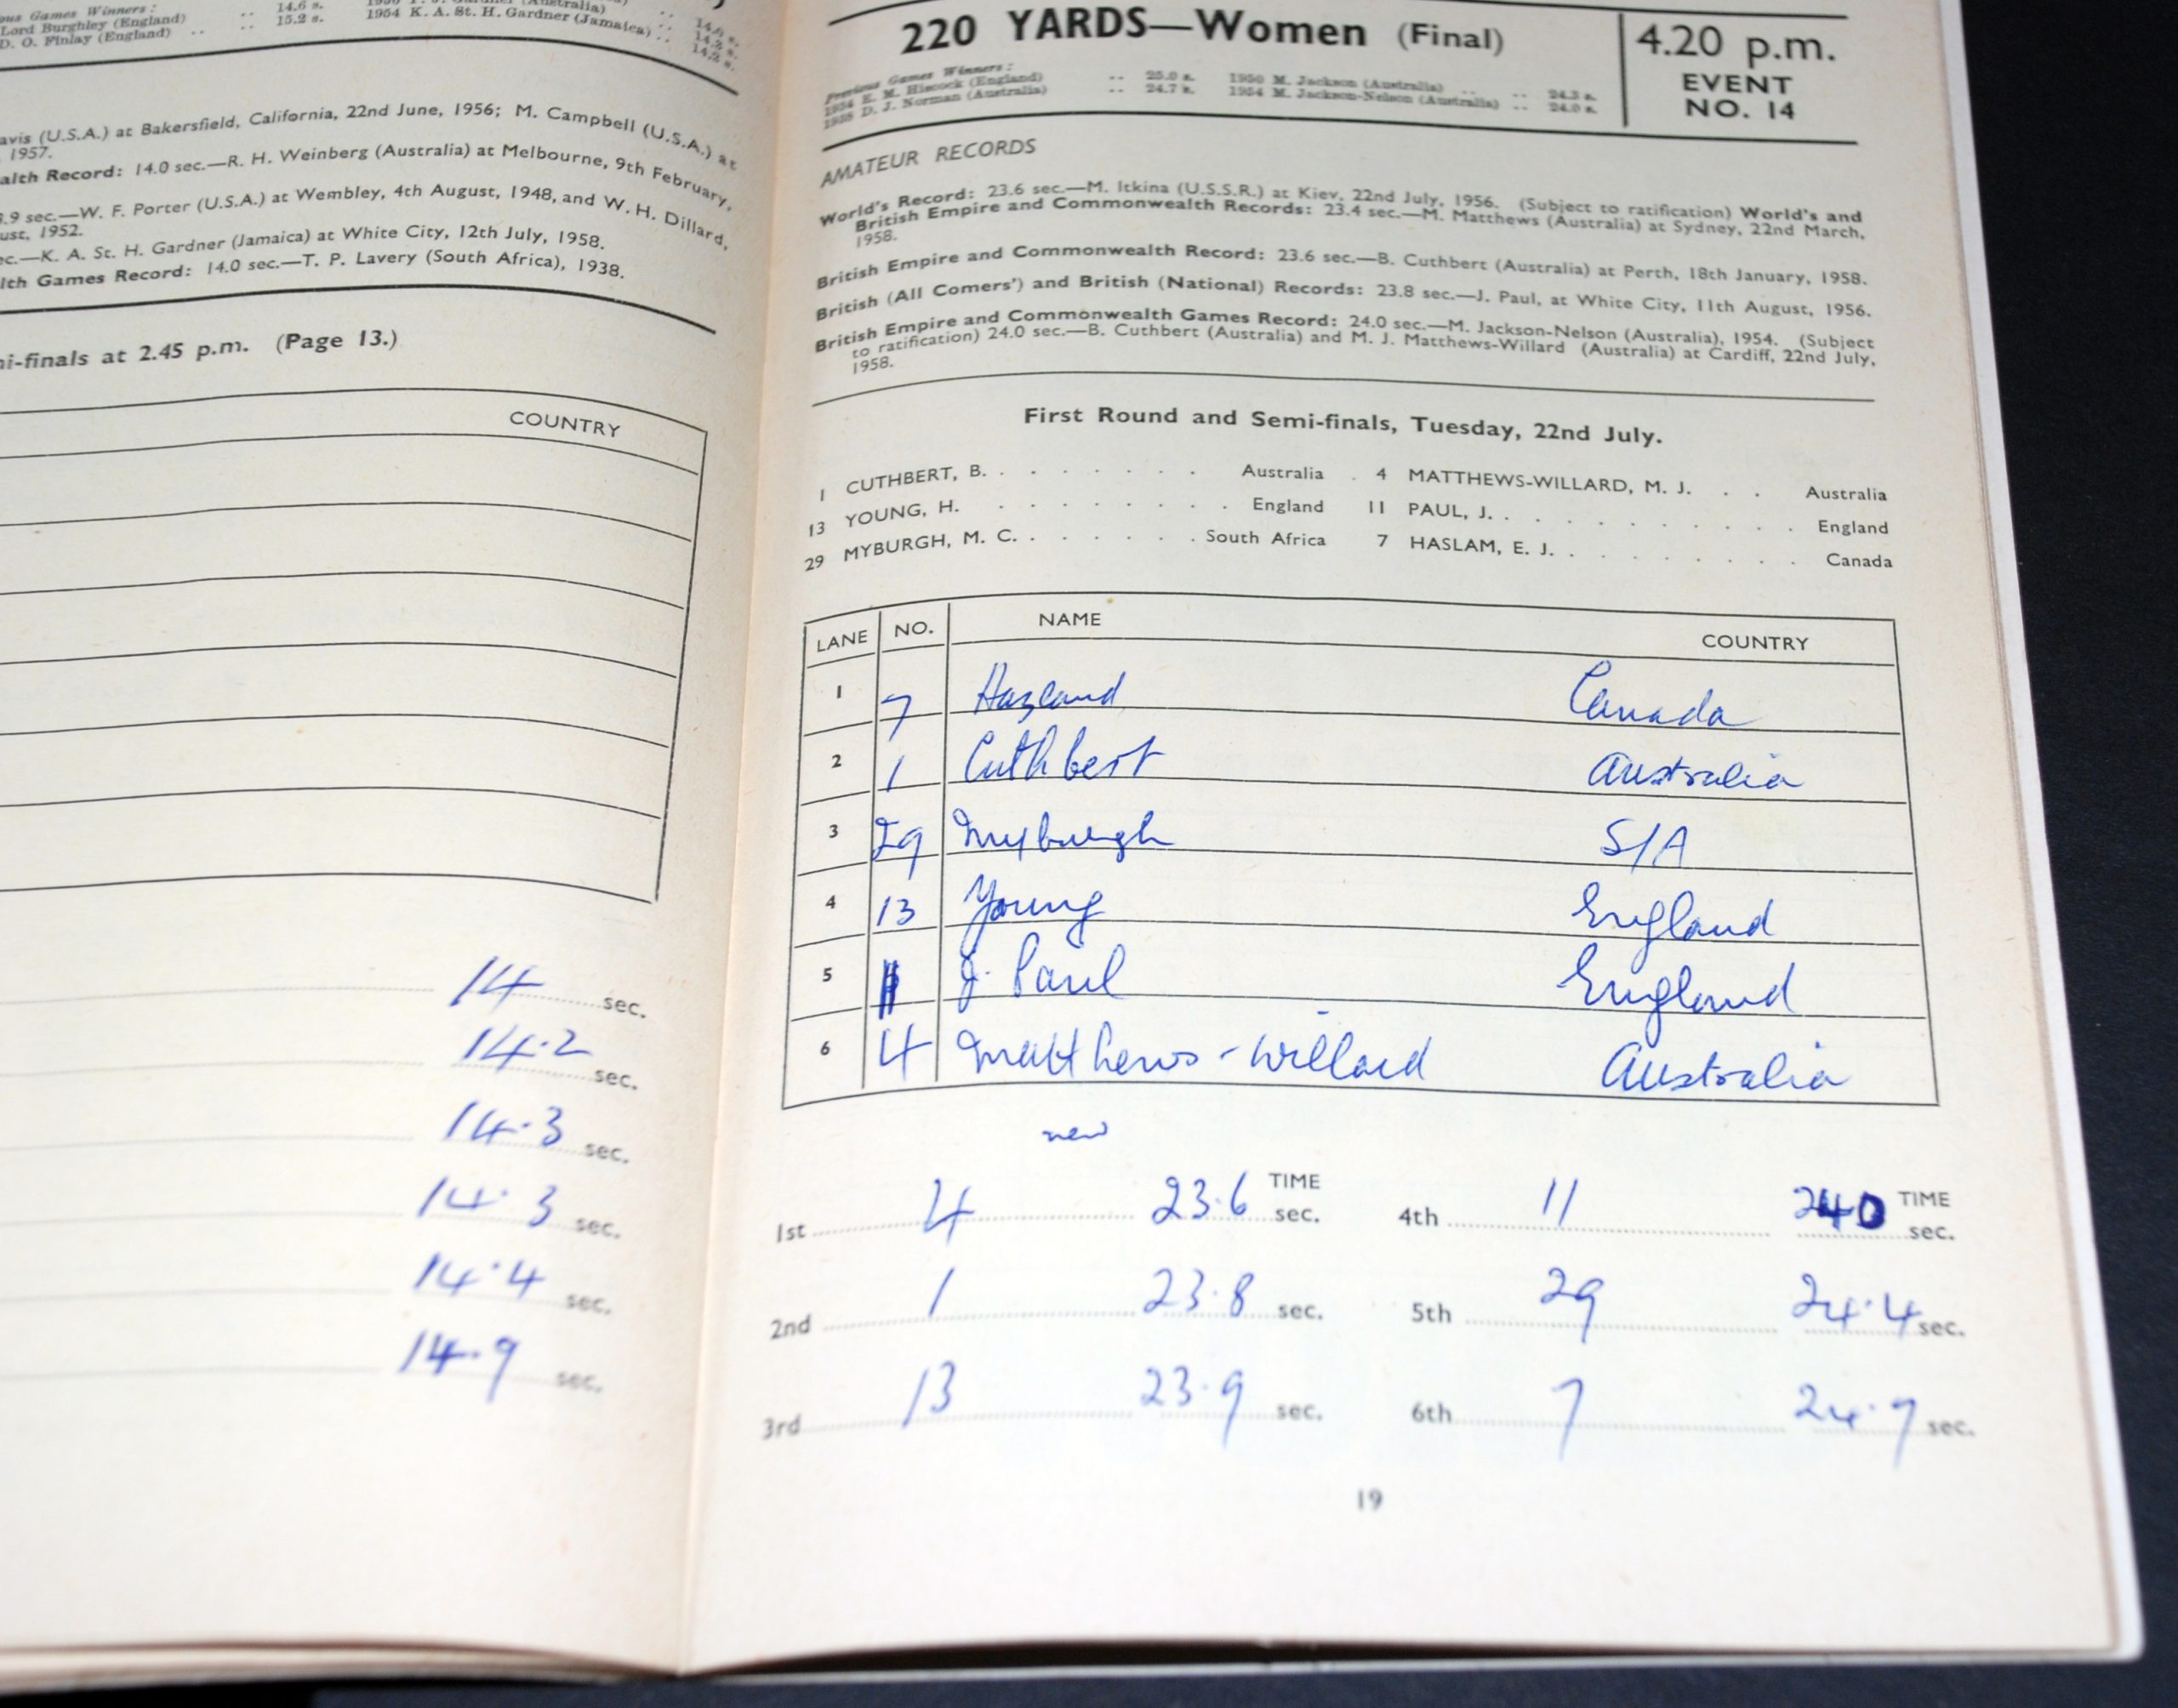 14.6 s.
Lord Burghley (England) .. 15.2 s. 1954 K. A. St. H. Gardner (Jamaica) .. 14.2 s.
D. O. Finlay (England) ..
avis (U.S.A.) at Bakersfield, California, 22nd June, 1956; M. Campbell (U.S.A.) at
1957.
alth Record: 14.0 sec.—R. H. Weinberg (Australia) at Melbourne, 9th February,
3.9 sec.—W. F. Porter (U.S.A.) at Wembley, 4th August, 1948, and W. H. Dillard,
ust, 1952.
ec.—K. A. St. H. Gardner (Jamaica) at White City, 12th July, 1958.
lth Games Record: 14.0 sec.—T. P. Lavery (South Africa), 1938.
ni-finals at 2.45 p.m. (Page 13.)
COUNTRY
14 sec.
14.2 sec.
14.3 sec.
14.3 sec.
14.4 sec.
14.9 sec.
220 YARDS—Women (Final)
4.20 p.m.
EVENT
NO. 14
Previous Games Winners:
1934 E. M. Hiscock (England) .. 25.0 s. 1950 M. Jackson (Australia) .. .. 24.3 s.
1938 D. J. Norman (Australia) .. 24.7 s. 1954 M. Jackson-Nelson (Australia) .. 24.0 s.
AMATEUR RECORDS
World's Record: 23.6 sec.—M. Itkina (U.S.S.R.) at Kiev, 22nd July, 1956. (Subject to ratification) World's and
British Empire and Commonwealth Records: 23.4 sec.—M. Matthews (Australia) at Sydney, 22nd March,
1958.
British Empire and Commonwealth Record: 23.6 sec.—B. Cuthbert (Australia) at Perth, 18th January, 1958.
British (All Comers') and British (National) Records: 23.8 sec.—J. Paul, at White City, 11th August, 1956.
British Empire and Commonwealth Games Record: 24.0 sec.—M. Jackson-Nelson (Australia), 1954. (Subject
to ratification) 24.0 sec.—B. Cuthbert (Australia) and M. J. Matthews-Willard (Australia) at Cardiff, 22nd July,
1958.
First Round and Semi-finals, Tuesday, 22nd July.
1 CUTHBERT, B. . . . . . . . Australia 4 MATTHEWS-WILLARD, M. J. . . Australia
13 YOUNG, H. . . . . . . . . England 11 PAUL, J. . . . . . . . . . . England
29 MYBURGH, M. C. . . . . . . South Africa 7 HASLAM, E. J. . . . . . . . . Canada
LANE NO. NAME COUNTRY
1 7 Hazland Canada
2 1 Cuthbert Australia
3 29 Myburgh S/A
4 13 Young England
5 11 J. Paul England
6 4 Matthews-Willard Australia
new
1st 4 23.6 TIME sec. 4th 11 240 TIME sec.
2nd 1 23.8 sec. 5th 29 24.4 sec.
3rd 13 23.9 sec. 6th 7 24.7 sec.
19